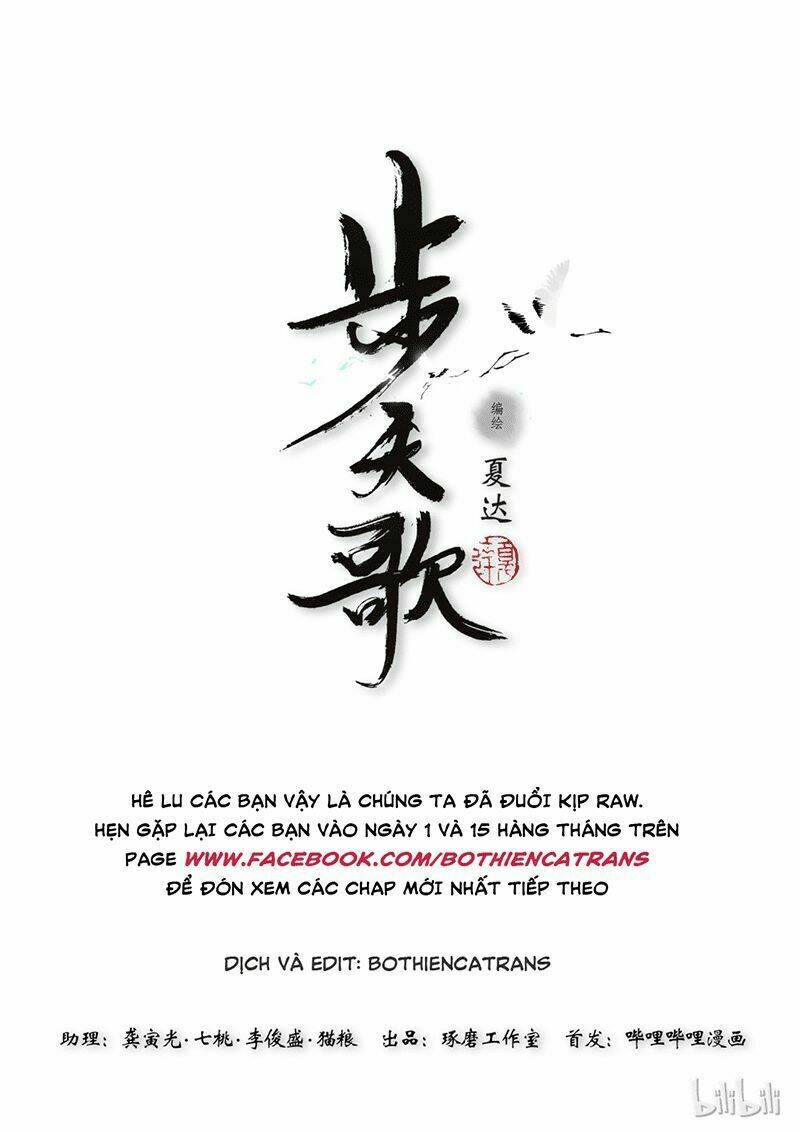 步天歌
编绘
夏达
HÊ LU CÁC BẠN VẬY LÀ CHÚNG TA ĐÃ ĐUỔI KỊP RAW.
HẸN GẶP LẠI CÁC BẠN VÀO NGÀY 1 VÀ 15 HÀNG THÁNG TRÊN
PAGE WWW.FACEBOOK.COM/BOTHIENCATRANS
ĐỂ ĐÓN XEM CÁC CHAP MỚI NHẤT TIẾP THEO
DỊCH VÀ EDIT: BOTHIENCATRANS
助理：龚寅光·七桃·李俊盛·猫粮 出品：琢磨工作室 首发：哔哩哔哩漫画
bilibili